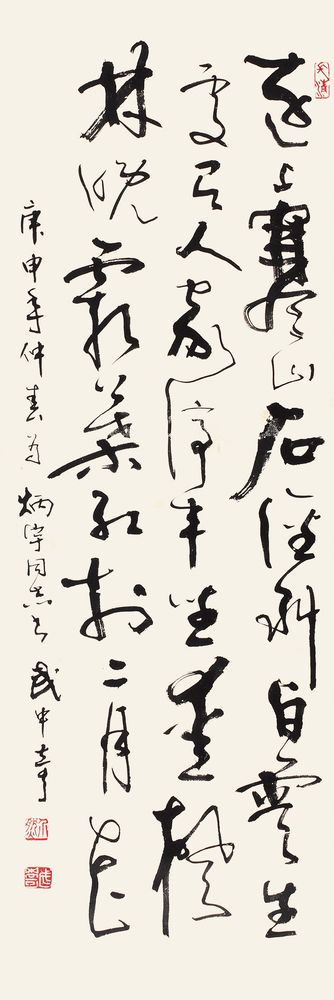 遠上寒山石徑斜白雲生
處有人家停車坐愛楓
林晚霜葉紅於二月花
庚申年仲春為炳宇同志書 武中奇